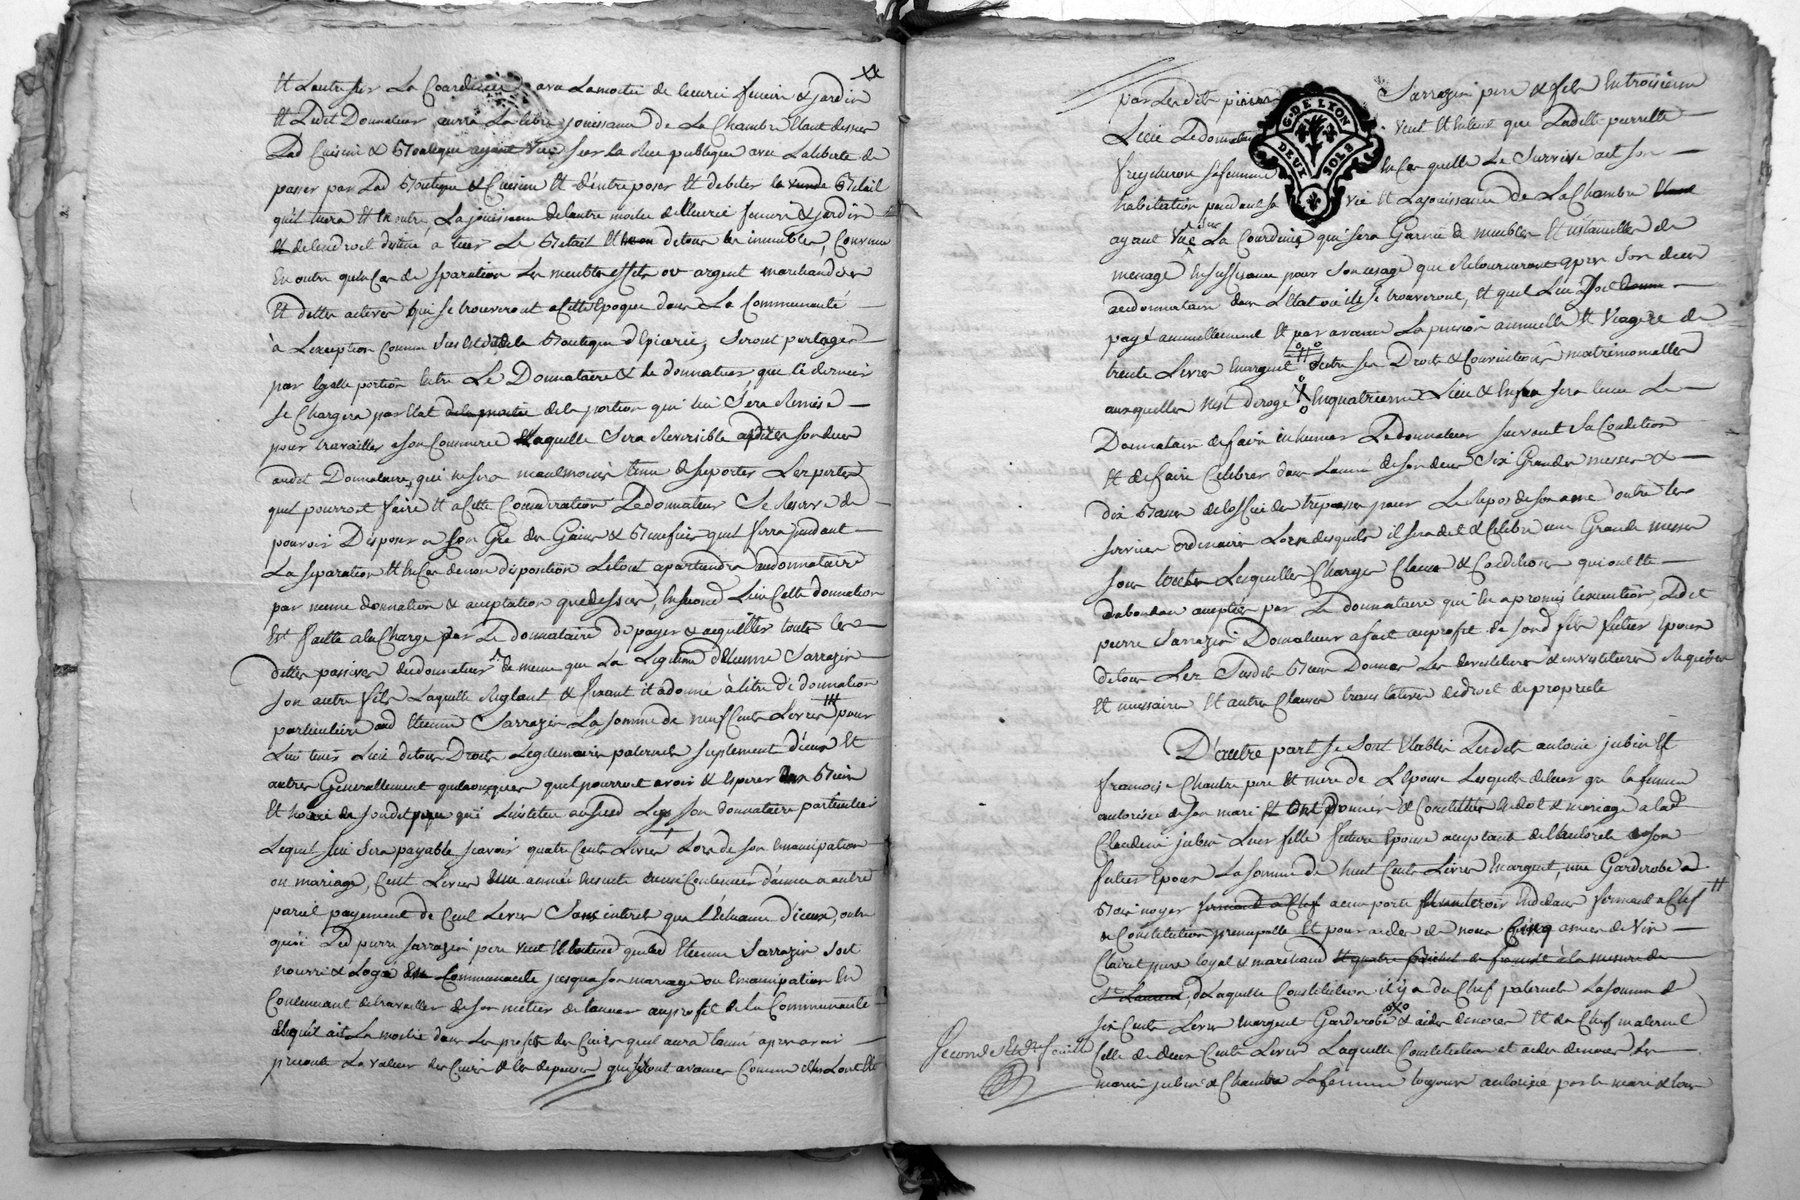 Et L'autre sur La Courdiciere avec La moitié de lecurie feniere & jardin
Et Ledit Donnateur aura La libre jouissance de La Chambre Etant dessus
Lad Cuisine & Boutique ayant Vue sur la Rue publique avec La liberté de
passer par Lad Boutique & Cuisine Et d'entreposer Et debiter la Betail
qu'il tuera Et En outre La jouissance de l'autre moitié d'Ecurie feniere & jardin
Et de l'endroit destiné a tuer Le Betail de tous les immeubles, Convenu
En outre qu'en Cas de Sparation Les meubles effets ou argent marchandises
Et dettes actives qui se trouveront a Cette Epoque dans La Communauté
à L'exception Comme dit de la Boutique d'Epicerie, Seront partagés
par Egalle portion Entre Le Donnataire & le donnateur que Ce dernier
Se Chargera par Etat de la moitié de la portion qui lui Sera Remise
pour travailler a son Commerce Laquelle Sera Reversible après son deces
audit Donnataire, qui ne sera neanlmoins tenu de suporter Les pertes
quil pourroit faire Et a Cette Consideration Le donnateur Se Reserve de
pouvoir Disposer a son Gré des Gains & Benefices quil ferra pendant
La separation Et En Cas de non disposition Le tout apartiendra au donnataire
par meme donnation & aceptation que dessus, En second Lieu Cette donnation
Est faitte a la Charge par Le donnataire de payer & acquitter toutes les
dettes passives dudonnateur de meme que La Legitime d'Etienne Sarrazin
Son autre fils Laquelle Reglant & fixant il a donné à titre de donnation
particuliere aud Etienne Sarrazin La somme de neuf Cents Livres pour
Lui tenir Lieu de tous Droits Legitimaires paternels suplement d'iceux Et
autres Generallement quelconques quil pourroit avoir & Esperer Biens
Et hoirie de sondit pere qui L'institue son donnataire particulier
Lequel lui Sera payable scavoir quatre Cents Livres Lors de son Emancipation
ou mariage, Cent Livres une année Ensuite Continuer d'année a autre
pareil payement de Cent Livres Sans interets que L'Echeance d'iceux, outre
quoi Led pierre Sarrazin pere veut Et Entend quelad Etienne Sarrazin soit
nourri & Logé En Communauté jusqua son mariage ou Emancipation En
Continuant de travailler de son metier de taneur au profit de la Communauté
Et quil ait La moitié dans Les profits des Cuirs quil aura tanné apres avoir
precomté La valleur des Cuirs & les depenses qui seront avancées Comme Elles L'ont Eté
par Lesdits pierre Sarrazin pere & fils En troisieme
Lieu Le donnateur veut Et Entend que Ladite pierrette
Freycheron sa femme En Cas quelle Le Survive ait son
habitation pendant sa vie Et La jouissance de La Chambre
ayant vue sur La Courdiciere qui sera Garnie de meubles Et ustancilles de
menage En suffisance pour son usage qui Retourneront apres son deces
au donnataire dans L'Etat ou ils se trouveront, Et quil Lui Soit
payé annuellement Et par avance La pension annuelle Et Viagere de
trente Livres En argent outre ses Droits & Conventions matrimonialles
auxquelles N'est derogé En quatrieme Lieu & Enfin sera tenu Le
Donnataire de faire inhumer Le donnateur suivant Sa Condition
Et de faire Celebrer dans L'année de son deces Six Grandes messes &
dix Basses de L'office des trepassés pour Le Repos de son ame outre les
services ordinaires Lors desquels il sera dit & Celebré une Grande messe
sous touttes Lesquelles Charges Clauses & Conditions qui ont Eté
Dabondan acceptées par Le donnataire qui En a promis L'execution, Ledit
pierre Sarrazin Donnateur a fait au profit de sond fils futur Epoux
de tous Les Susdits Biens Donnés Les devestitures & investitures Requises
Et necessaires Et autres Clauses translatives de droit de proprieté
D'autre part se Sont Etablis Lesdits antoine jubin Et
francoise Chautre pere Et mere de L'Epouse Lesquels de leur gré la femme
autorisée de son mari Et Ont Donné & Constitué En dot & mariage a lad
Claudine jubin Leur fille future Epouse aceptant de L'autorité de son
futur Epoux La somme de huit Cents Livres En argent, une Garderobe de
Bois noyer fermant a Clef a cinq portes Endedans fermant a Clef
de Constitution principalle Et pour aides de noces Cinq annees de Vin
Clairet pure loyal & marchand Et quatre de froment à la mesure de
St Laurent, de Laquelle Constitution il y a du Chef paternel La somme de
six Cents Livres En argent Garderobe & aides de noces Et du Chef maternel
Celle de deux Cents Livres Laquelle Constitution et aides de noces Les
maries jubin & Chambre La femme toujours autorisée par le mari & tous
Seconde Et de feuille
G. DE LYON
DEUX SOLS